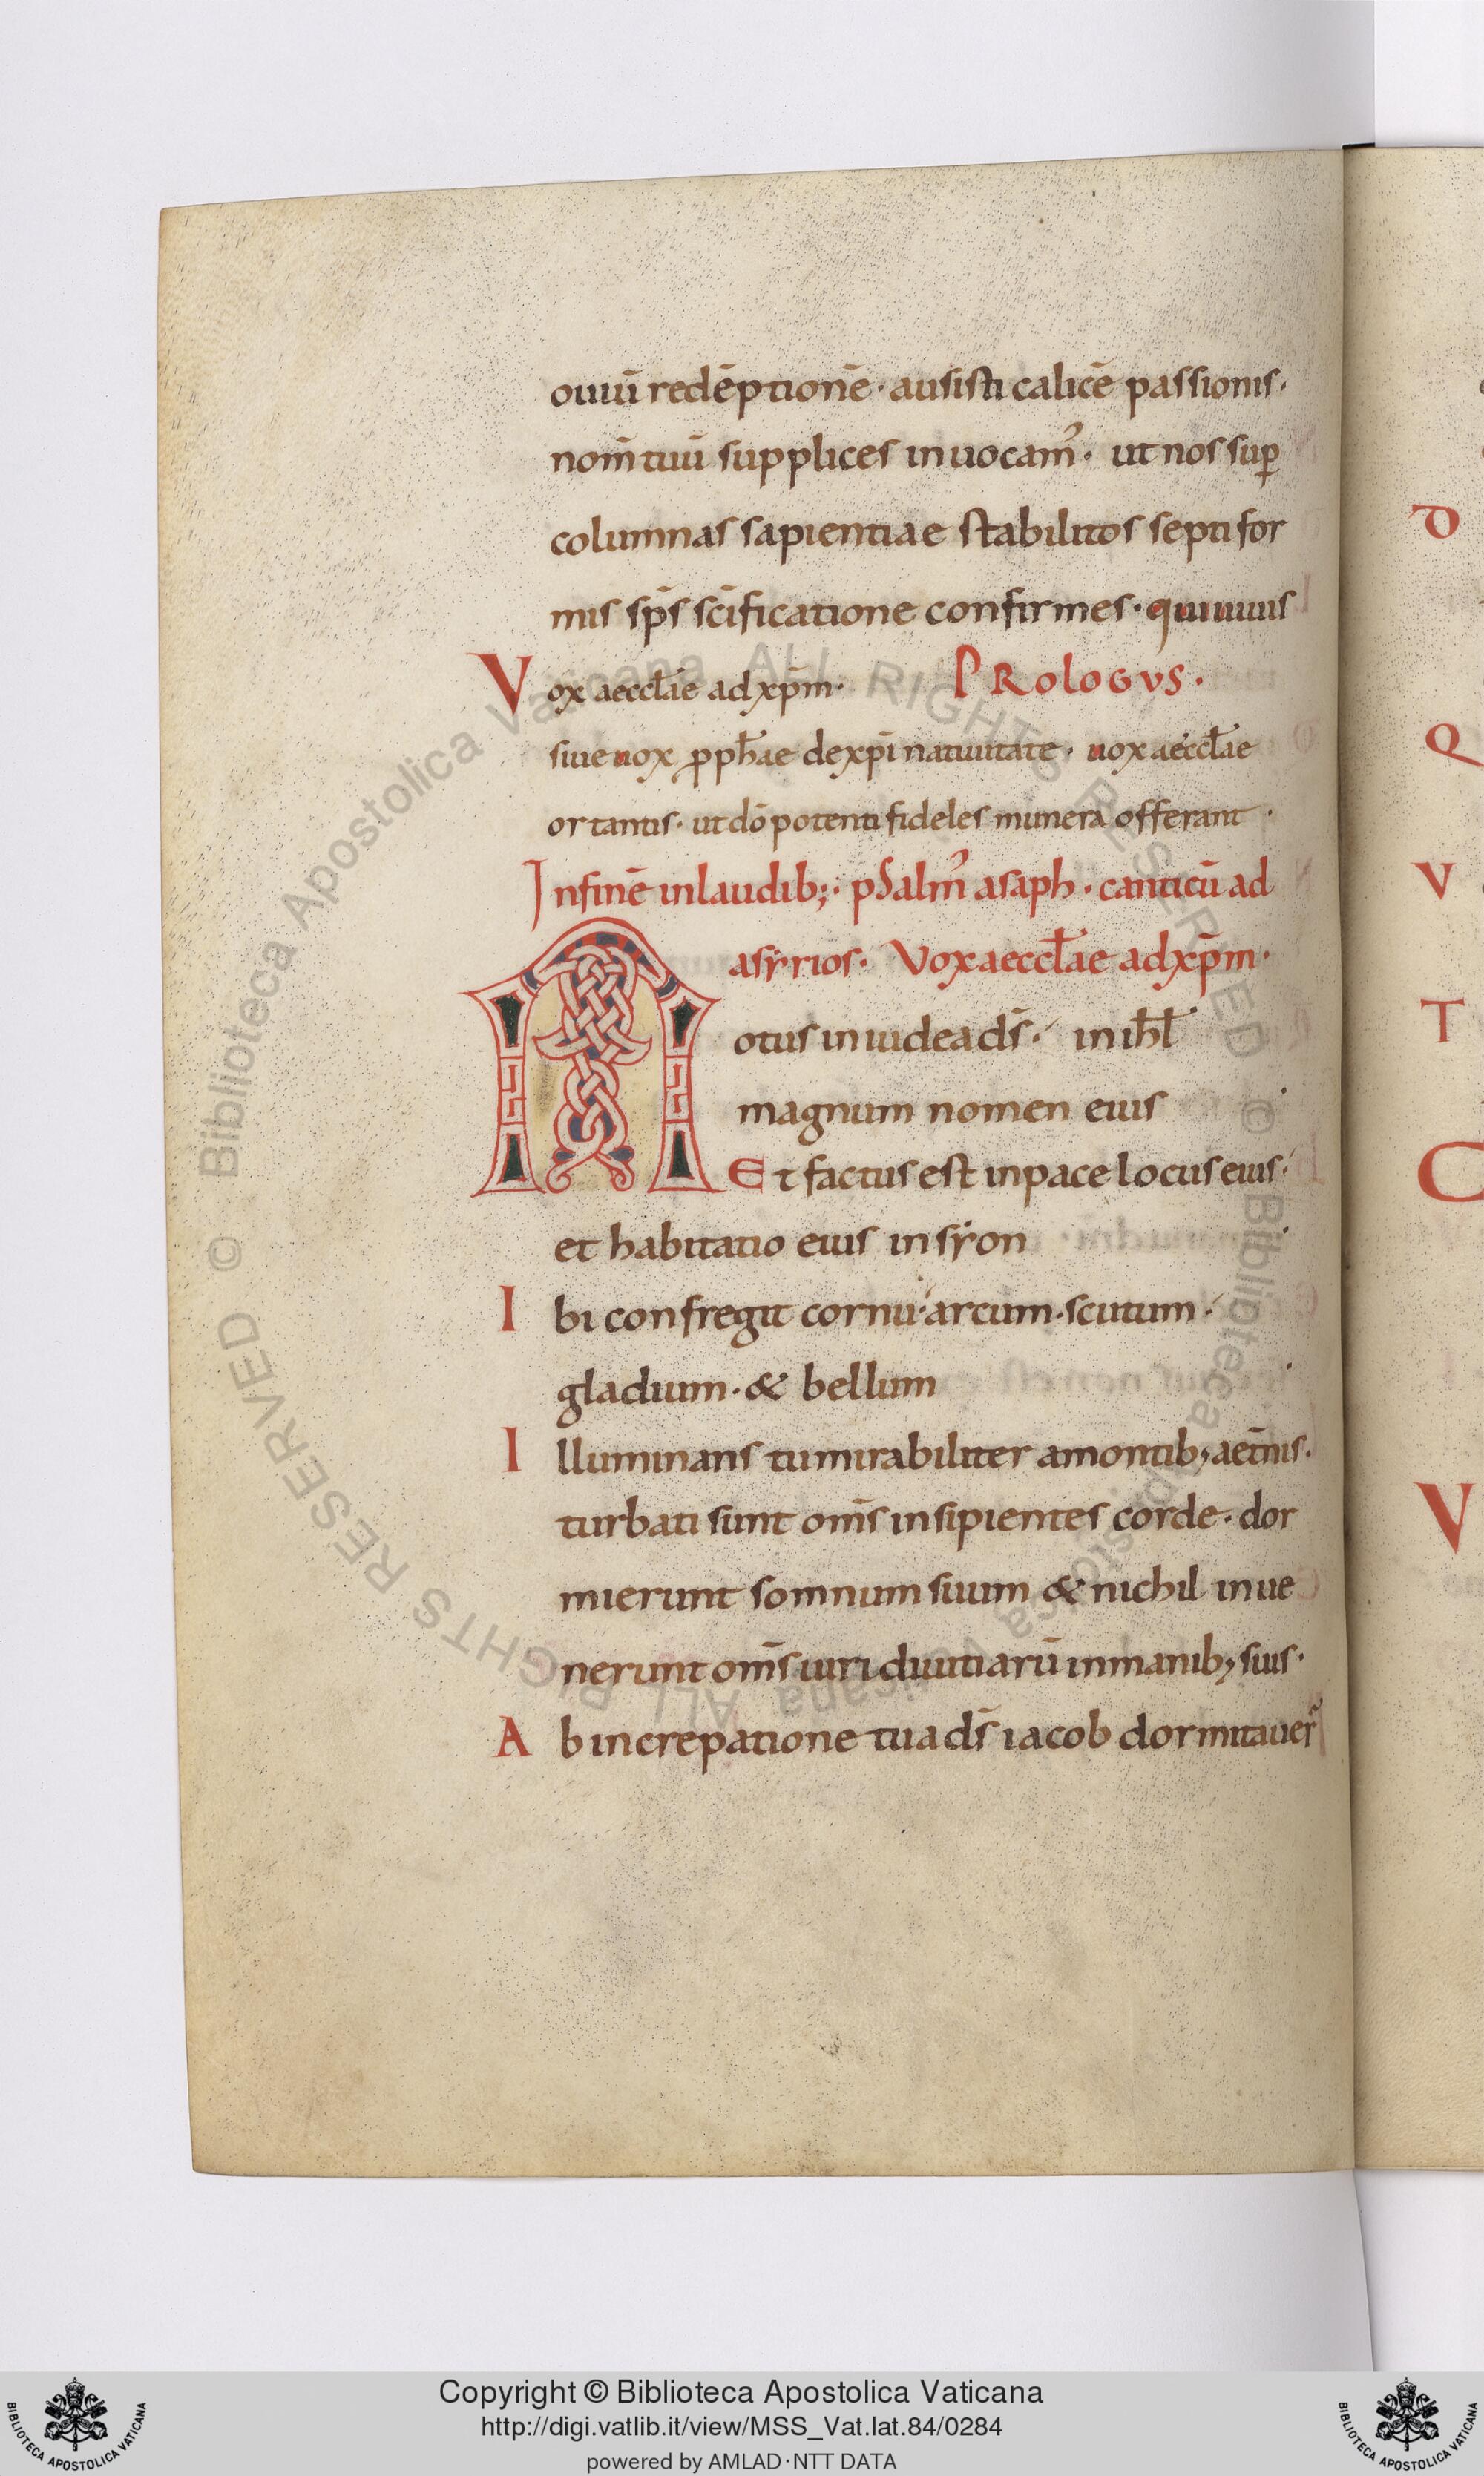 ouiū redēptionē · ausisti calicē passionis·
nom̄ tuū supplices inuocam᾽· ut nos suꝑ
columnas sapientiae stabilitos septifor
mis sp̄s sc̄ificatione confirmes · quiuiuis
Vox aeccl̄ae adxp̄m· PROLOGVS·
siue uox ꝓph̄ae dexp̄i natiuitate · uox aeccl̄ae
ortantis· ut dō potenti fideles munera offerant ·
Infinē inlaudib;· psalm᾽ asaph · canticū ad
asẏrios· Vox aeccl̄ae adxp̄m·
Notus iniudea ds̄· in ihl̄
magnum nomen eius
Et factus est inpace locus eius·
et habitatio eius insẏon
Ibi confregit cornu· arcum · scutum·
gladium · & bellum
Illuminans tu mirabiliter amontib; aet̄nis·
turbati sunt om̄s insipientes corde · dor
mierunt somnum suum & nichil inue
nerunt om̄s uiri diuitiarū inmanib; suis·
Ab increpatione tua ds̄ iacob dormitauer̄
D
Q
V
T
C
V
© Biblioteca Apostolica Vaticana ALL RIGHTS RESERVED
© Biblioteca Apostolica Vaticana ALL RIGHTS RESERVED
Copyright © Biblioteca Apostolica Vaticana
http://digi.vatlib.it/view/MSS_Vat.lat.84/0284
powered by AMLAD·NTT DATA
BIBLIOTECA APOSTOLICA VATICANA
BIBLIOTECA APOSTOLICA VATICANA